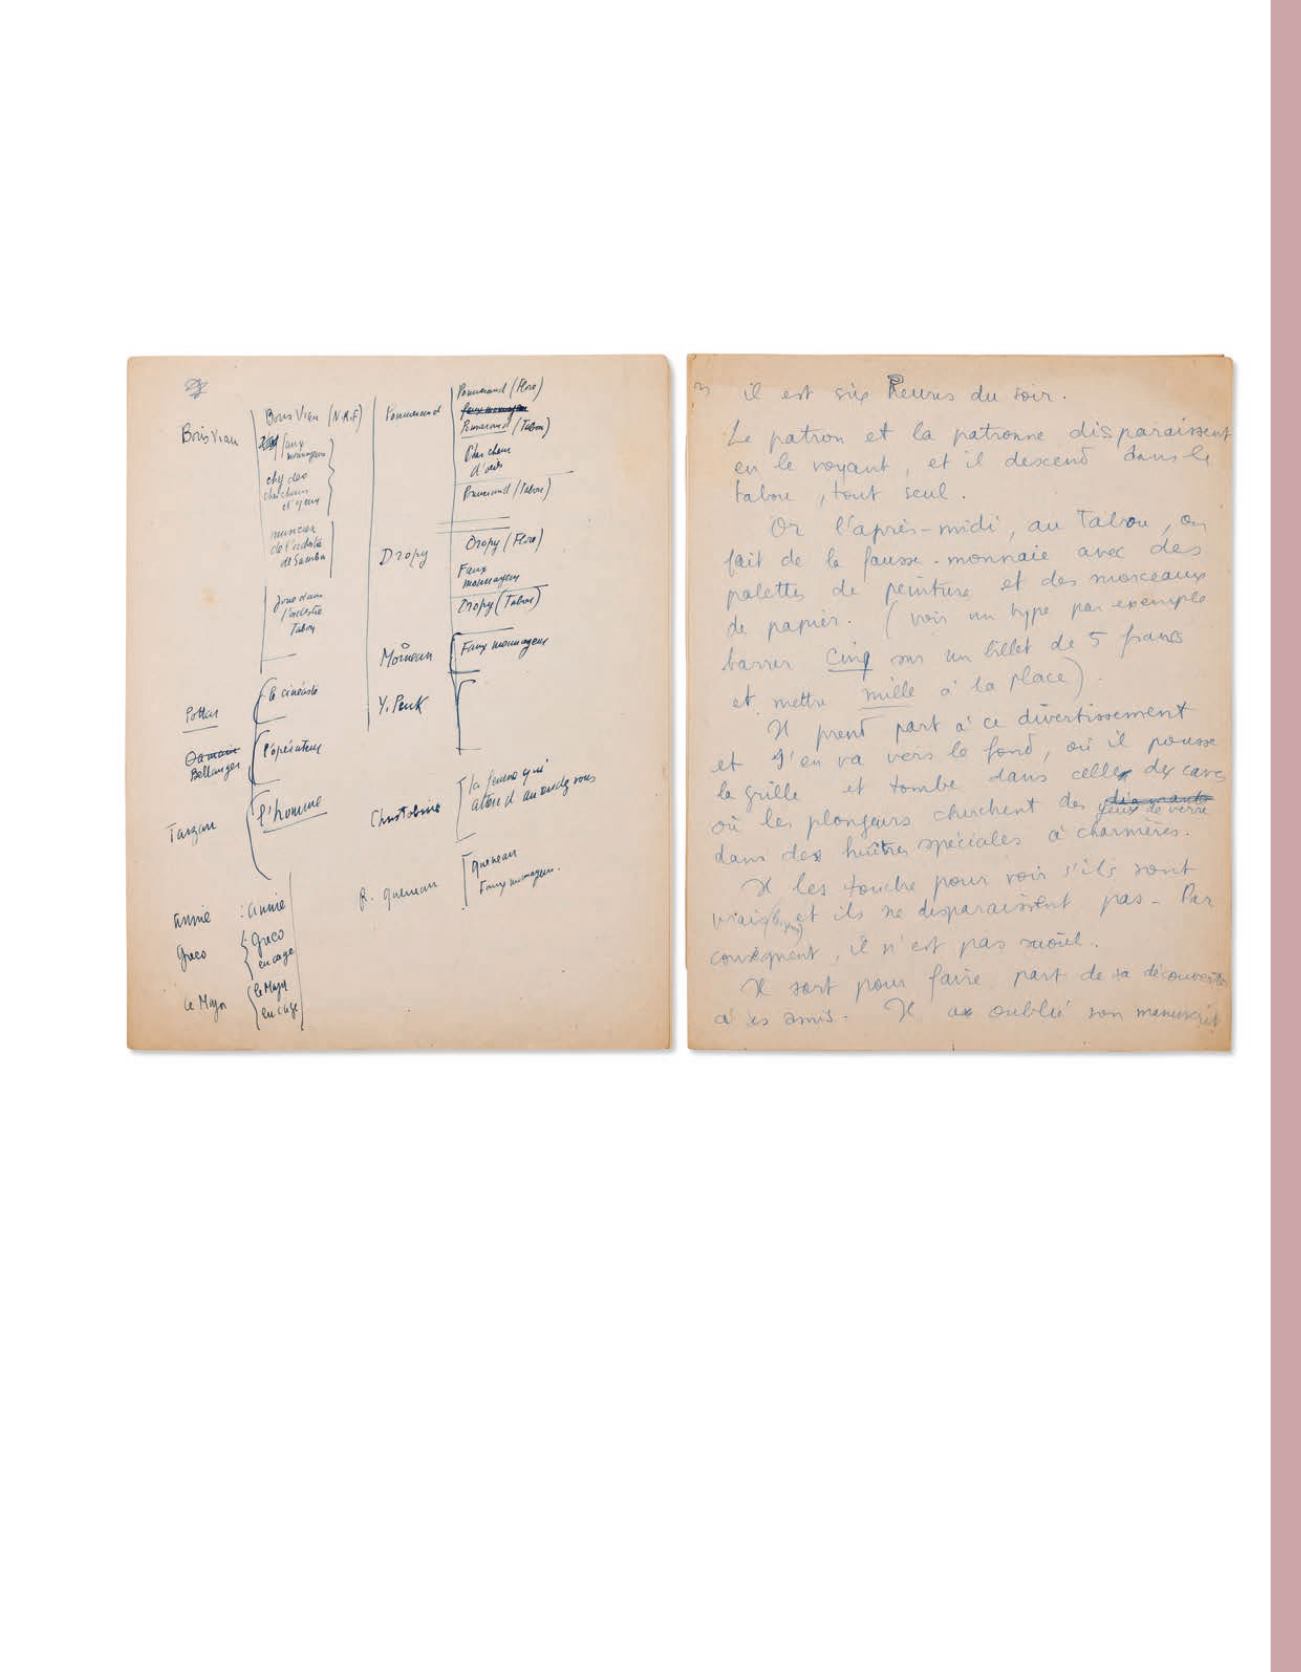 Boris Vian
Boris Vian (N.R.F)
faux
monnayeurs
chez des
chercheurs
musicien
de l'orchestre
de Samba
joue dans
l'orchestre
Tabou
Pottar
le cinéaste
Bellanger
l'opérateur
Tarzan
l'homme
Annie : Annie
Greco
Greco
en cage
le Major
le Major
en cage
Pommerand
Pommerand (Flore)
faux monnayeur
Pommerand (Tabou)
Chercheur
Pommerand (Tabou)
Dropy
Dropy (Flore)
Faux
monnayeur
Dropy (Tabou)
Faux monnayeur
Y. Peuk
la femme qui
attend au rendez vous
R. Queneau
Queneau
Faux monnayeur.
il est six heures du soir.
Le patron et la patronne disparaissent
en le voyant, et il descend dans le
tabou, tout seul.
Or l'après-midi, au Tabou, on
fait de la fausse-monnaie avec des
palettes de peinture et des morceaux
de papier. (voir un type par exemple
barrer Cinq sur un billet de 5 francs
et mettre mille à la place).
Il prend part à ce divertissement
et s'en va vers le fond, où il pousse
la grille et tombe dans celle des caves
où les plongeurs cherchent des diamants yeux de verre
dans des huîtres spéciales à charnières.
Il les touche pour voir s'ils sont
vrais et ils ne disparaissent pas - Par
conséquent, il n'est pas saoûl.
Il sort pour faire part de sa découverte
à ses amis. Il a oublié son manuscrit